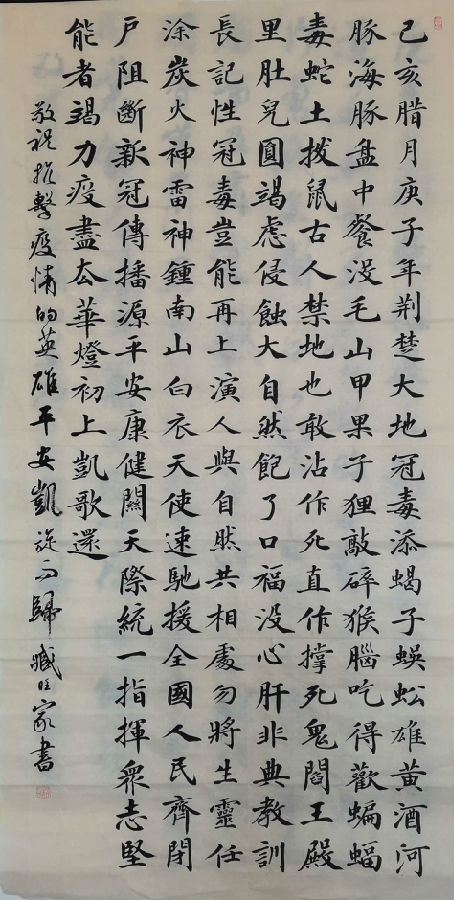 己亥腊月庚子年荆楚大地冠毒添蝎子蜈蚣雄黄酒河
豚海豚盘中餐没毛山甲果子狸敲碎猴腦吃得歡蝙蝠
毒蛇土拨鼠古人禁地也敢沾作死直作撑死鬼閻王殿
里肚兒圓竭虑侵蝕大自然飽了口福没心肝非典教訓
長記性冠毒豈能再上演人與自然共相處勿將生靈任
涂炭火神雷神鍾南山白衣天使速馳援全國人民齊閉
戶阻斷新冠傳播源平安康健關天際統一指揮衆志堅
能者竭力疫盡去華燈初上凱歌還
敬祝抗擊疫情的英雄平安凱旋而歸臧旺家書